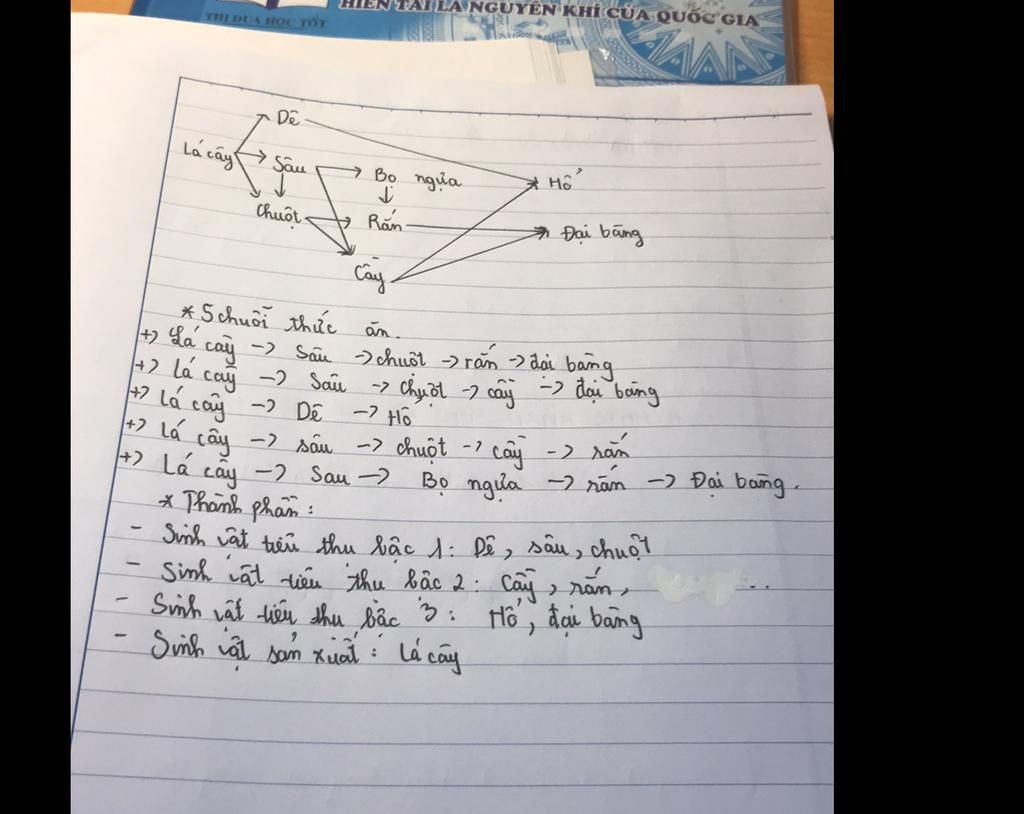 HIỀN TÀI LÀ NGUYÊN KHÍ CỦA QUỐC GIA
THI ĐUA HỌC TỐT
Dê
Lá cây Sâu Bọ ngựa Hổ
Chuột Rắn Đại bàng
Cầy
* 5 chuỗi thức ăn.
+) Lá cây -> Sâu -> chuột -> rắn -> đại bàng
+) Lá cây -> Sâu -> chuột -> cầy -> đại bàng
+) Lá cây -> Dê -> Hổ
+) Lá cây -> sâu -> chuột -> cầy -> rắn
+) Lá cây -> Sau -> Bọ ngựa -> rắn -> Đại bàng.
* Thành phần:
- Sinh vật tiêu thu bậc 1: Dê, sâu, chuột
- Sinh vật tiêu thu bậc 2: Cầy, rắn,
- Sinh vật tiêu thu bậc 3: Hổ, đại bàng
- Sinh vật sản xuất: lá cây